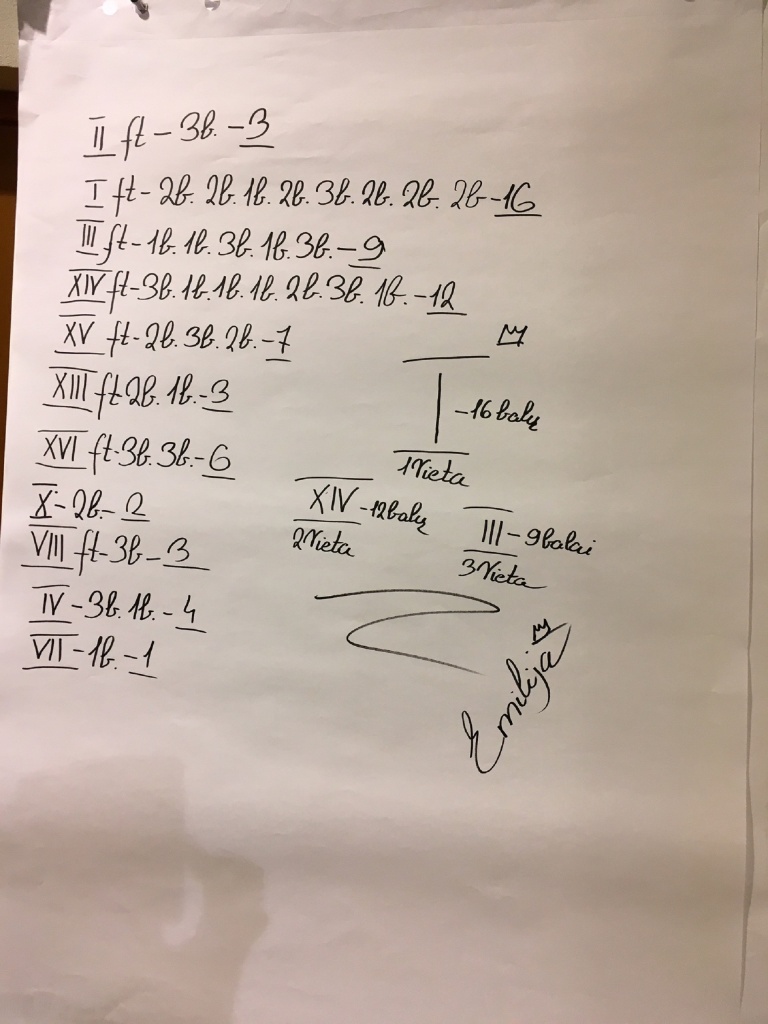 II ft - 3b. - 3
I ft - 2b. 2b. 1b. 2b. 3b. 2b. 2b. 2b - 16
III ft - 1b. 1b. 3b. 1b. 3b. - 9
XIV ft - 3b. 1b. 1b. 1b. 2b. 3b. 1b. - 12
XV ft - 2b. 3b. 2b. - 7
XIII ft 2b. 1b. - 3
XVI ft - 3b. 3b. - 6
X - 2b - 2
VIII ft - 3b - 3
IV - 3b. 1b. - 4
VII - 1b. - 1
I - 16 balų
1 Vieta
XIV - 12 balų
2 Vieta
III - 9 balai
3 Vieta
Emilija